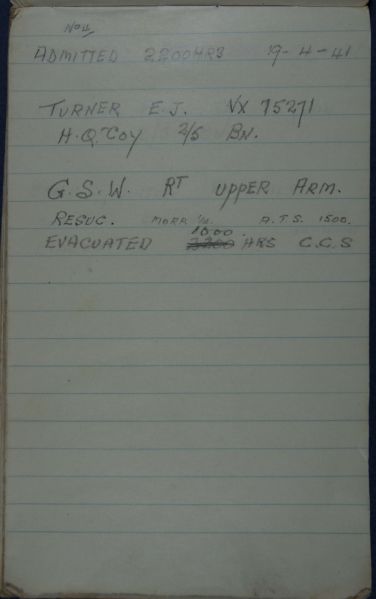 No 11
ADMITTED 2200 HRS 19-4-41
TURNER E.J. VX 75271
H.Q. Coy 2/5 BN.
G.S.W. RT UPPER ARM.
RESUC. MORR 1/4. A.T.S. 1500.
1000
EVACUATED 2200 HRS C.C.S